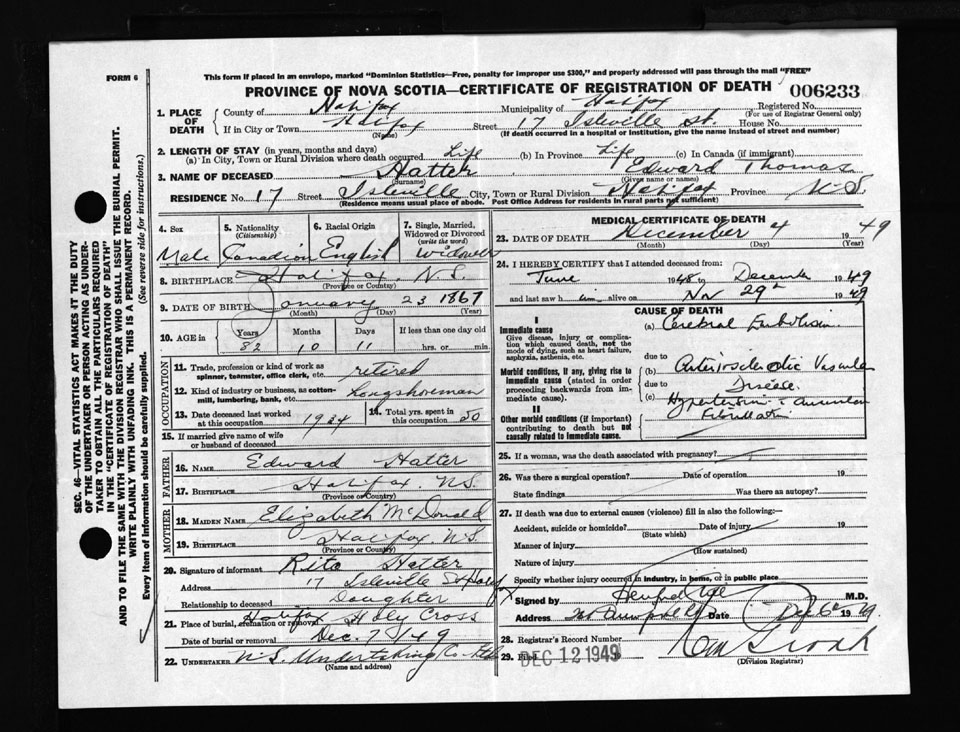 FORM 6
This form if placed in an envelope, marked "Dominion Statistics—Free, penalty for improper use $300," and properly addressed will pass through the mail "FREE"
PROVINCE OF NOVA SCOTIA—CERTIFICATE OF REGISTRATION OF DEATH
006233
1. PLACE OF DEATH
County of Halifax Municipality of Halifax Registered No.
(For use of Registrar General only)
If in City or Town Halifax Street 17 Isleville St. House No.
(Name) (If death occurred in a hospital or institution, give the name instead of street and number)
2. LENGTH OF STAY (in years, months and days)
(a) In City, Town or Rural Division where death occurred Life (b) In Province Life (c) In Canada (if immigrant)
3. NAME OF DECEASED Hatter Edward Thomas
(Surname) (Given name or names)
RESIDENCE No. 17 Street Isleville City, Town or Rural Division Halifax Province N.S.
(Residence means usual place of abode. Post Office Address for residents in rural parts not sufficient)
4. Sex 5. Nationality 6. Racial Origin 7. Single, Married,
(Citizenship) Widowed or Divorced
(write the word)
Male Canadian English widower
8. BIRTHPLACE Halifax, N.S.
(Province or Country)
9. DATE OF BIRTH January 23 1867
(Month) (Day) (Year)
10. AGE in Years Months Days If less than one day old
82 10 11 hrs. or min.
OCCUPATION
11. Trade, profession or kind of work as
spinner, teamster, office clerk, etc. retired
12. Kind of industry or business, as cotton-
mill, lumbering, bank, etc. Longshoreman
13. Date deceased last worked
at this occupation 1934
14. Total yrs. spent in
this occupation 50
15. If married give name of wife
or husband of deceased
FATHER
16. NAME Edward Hatter
17. BIRTHPLACE Halifax N.S.
(Province or Country)
MOTHER
18. MAIDEN NAME Elizabeth McDonald
19. BIRTHPLACE Halifax N.S.
(Province or Country)
20. Signature of informant Rita Hatter
Address 17 Isleville St
Relationship to deceased Daughter
21. Place of burial, cremation or removal Halifax Holy Cross
Date of burial or removal Dec. 7/49
22. UNDERTAKER N.S. Undertaking Co. Ltd
(Name and address)
MEDICAL CERTIFICATE OF DEATH
23. DATE OF DEATH December 4 1949
(Month) (Day) (Year)
24. I HEREBY CERTIFY that I attended deceased from:
June 1948 to December 1949
and last saw him alive on Nov 29th 1949
CAUSE OF DEATH
I
Immediate cause
Give disease, injury or complica-
tion which caused death, not the
mode of dying, such as heart failure,
asphyxia, asthenia, etc.
(a) Cerebral Embolism
due to
Morbid conditions, if any, giving rise to
immediate cause (stated in order
proceeding backwards from im-
mediate cause)
(b) Arteriosclerotic Vascular
due to Disease.
(c) Hypertension & auricular
Fibrillation
II
Other morbid conditions (if important)
contributing to death but not
causally related to immediate cause.
25. If a woman, was the death associated with pregnancy?
26. Was there a surgical operation? Date of operation 19
State findings Was there an autopsy?
27. If death was due to external causes (violence) fill in also the following:—
Accident, suicide or homicide? Date of injury 19
(State which)
Manner of injury
(How sustained)
Nature of injury
Specify whether injury occurred in industry, in home, or in public place
Signed by M.D.
Address Date Dec 6th 1949
28. Registrar's Record Number
29. Filed DEC 12 1949
(Division Registrar)
SEC. 46—VITAL STATISTICS ACT MAKES IT THE DUTY
OF THE UNDERTAKER OR PERSON ACTING AS UNDER-
TAKER TO OBTAIN ALL THE PARTICULARS REQUIRED
IN THE "CERTIFICATE OF REGISTRATION OF DEATH"
AND TO FILE THE SAME WITH THE DIVISION REGISTRAR WHO SHALL ISSUE THE BURIAL PERMIT.
WRITE PLAINLY WITH UNFADING INK. THIS IS A PERMANENT RECORD.
Every item of information should be carefully supplied. (See reverse side for instructions.)